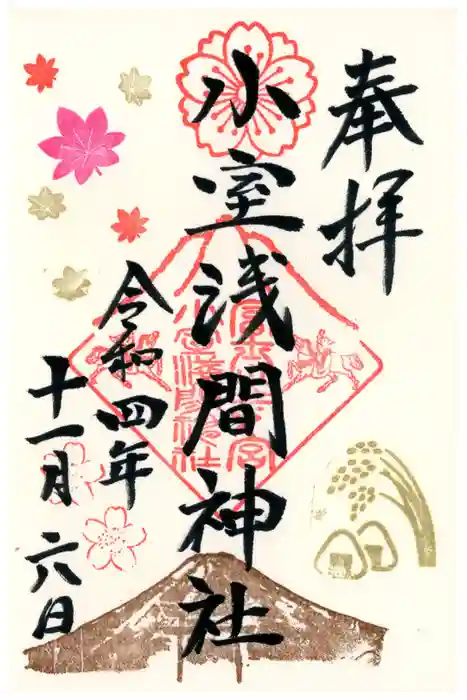 奉拝
小室浅間神社
令和四年
十一月六日